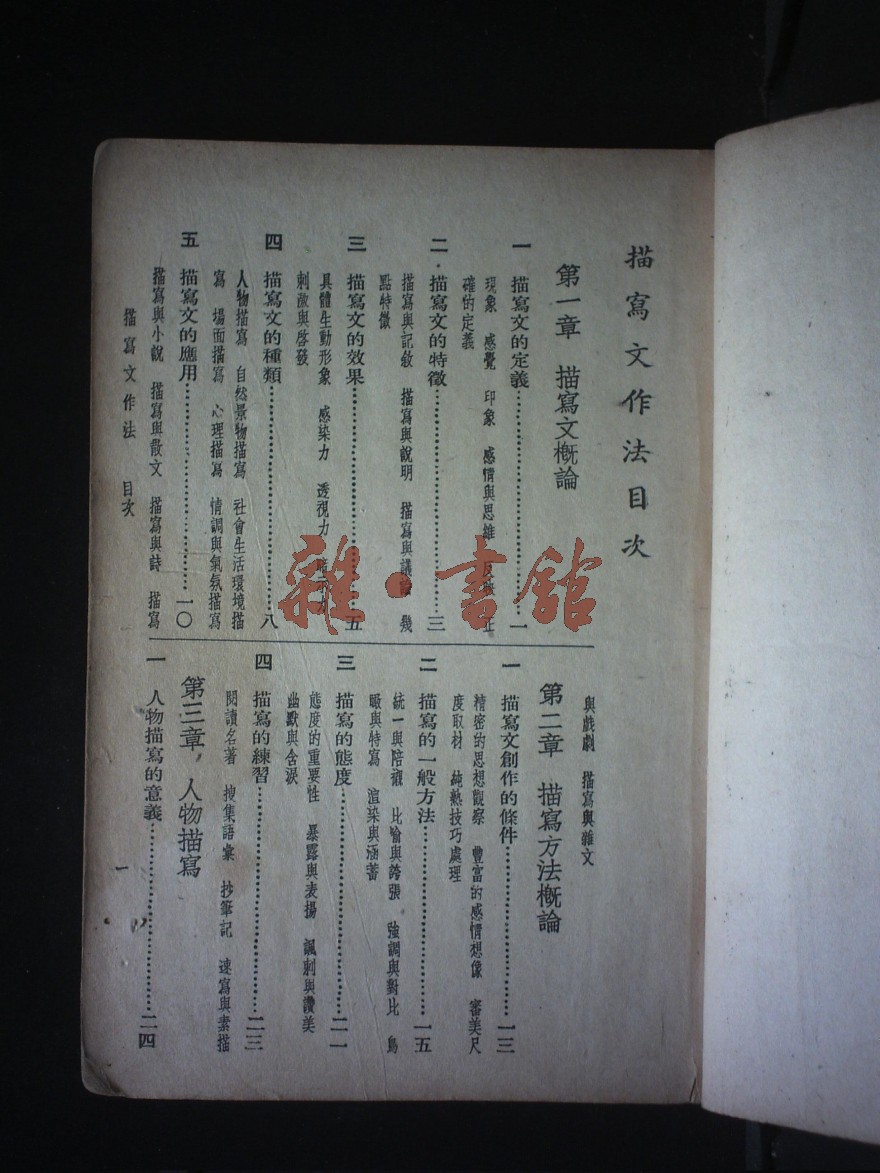 描寫文作法目次
第一章　描寫文概論
一　描寫文的定義…………一
現象　感覺　印象　感情與思維　反映　正
確的定義
二　描寫文的特徵…………三
描寫與記敘　描寫與說明　描寫與議論　幾
點特徵
三　描寫文的效果…………五
具體生動形象　感染力　透視力　暗示力
刺激與啓發
四　描寫文的種類…………八
人物描寫　自然景物描寫　社會生活環境描
寫　場面描寫　心理描寫　情調與氣氛描寫
五　描寫文的應用…………一〇
描寫與小說　描寫與散文　描寫與詩　描寫
與戲劇　描寫與雜文
第二章　描寫方法概論
一　描寫文創作的條件…………一三
精密的思想觀察　豐富的感情想像　審美尺
度取材　純熟技巧處理
二　描寫的一般方法…………一五
統一與陪襯　比喻與誇張　強調與對比　鳥
瞰與特寫　渲染與涵蓄
三　描寫的態度…………二一
態度的重要性　暴露與表揚　諷刺與讚美
幽默與含淚
四　描寫的練習…………二三
閱讀名著　搜集語彙　抄筆記　速寫與素描
第三章　人物描寫
一　人物描寫的意義…………二四
描寫文作法　目次
一
雜·書館